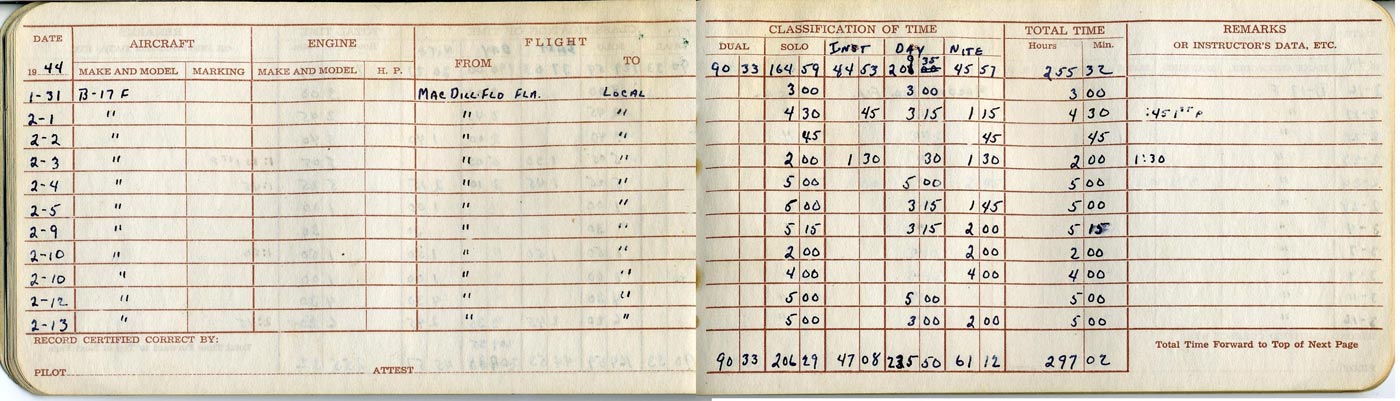 DATE AIRCRAFT ENGINE FLIGHT CLASSIFICATION OF TIME TOTAL TIME REMARKS
FROM TO DUAL SOLO INST DAY NITE Hours Min. OR INSTRUCTOR'S DATA, ETC.
1944 MAKE AND MODEL MARKING MAKE AND MODEL H. P. 90 33 164 59 44 53 209 35 45 57 255 32
1-31 B-17 F MAC DILL FLD FLA. LOCAL 3 00 3 00 3 00
2-1 " " " 4 30 45 3 15 1 15 4 30 :45 1ST P
2-2 " " " 45 45 45
2-3 " " " 2 00 1 30 30 1 30 2 00 1:30
2-4 " " " 5 00 5 00 5 00
2-5 " " " 5 00 3 15 1 45 5 00
2-9 " " " 5 15 3 15 2 00 5 15
2-10 " " " 2 00 2 00 2 00
2-10 " " " 4 00 4 00 4 00
2-12 " " " 5 00 5 00 5 00
2-13 " " " 5 00 3 00 2 00 5 00
RECORD CERTIFIED CORRECT BY: Total Time Forward to Top of Next Page
PILOT ATTEST 90 33 206 29 47 08 235 50 61 12 297 02